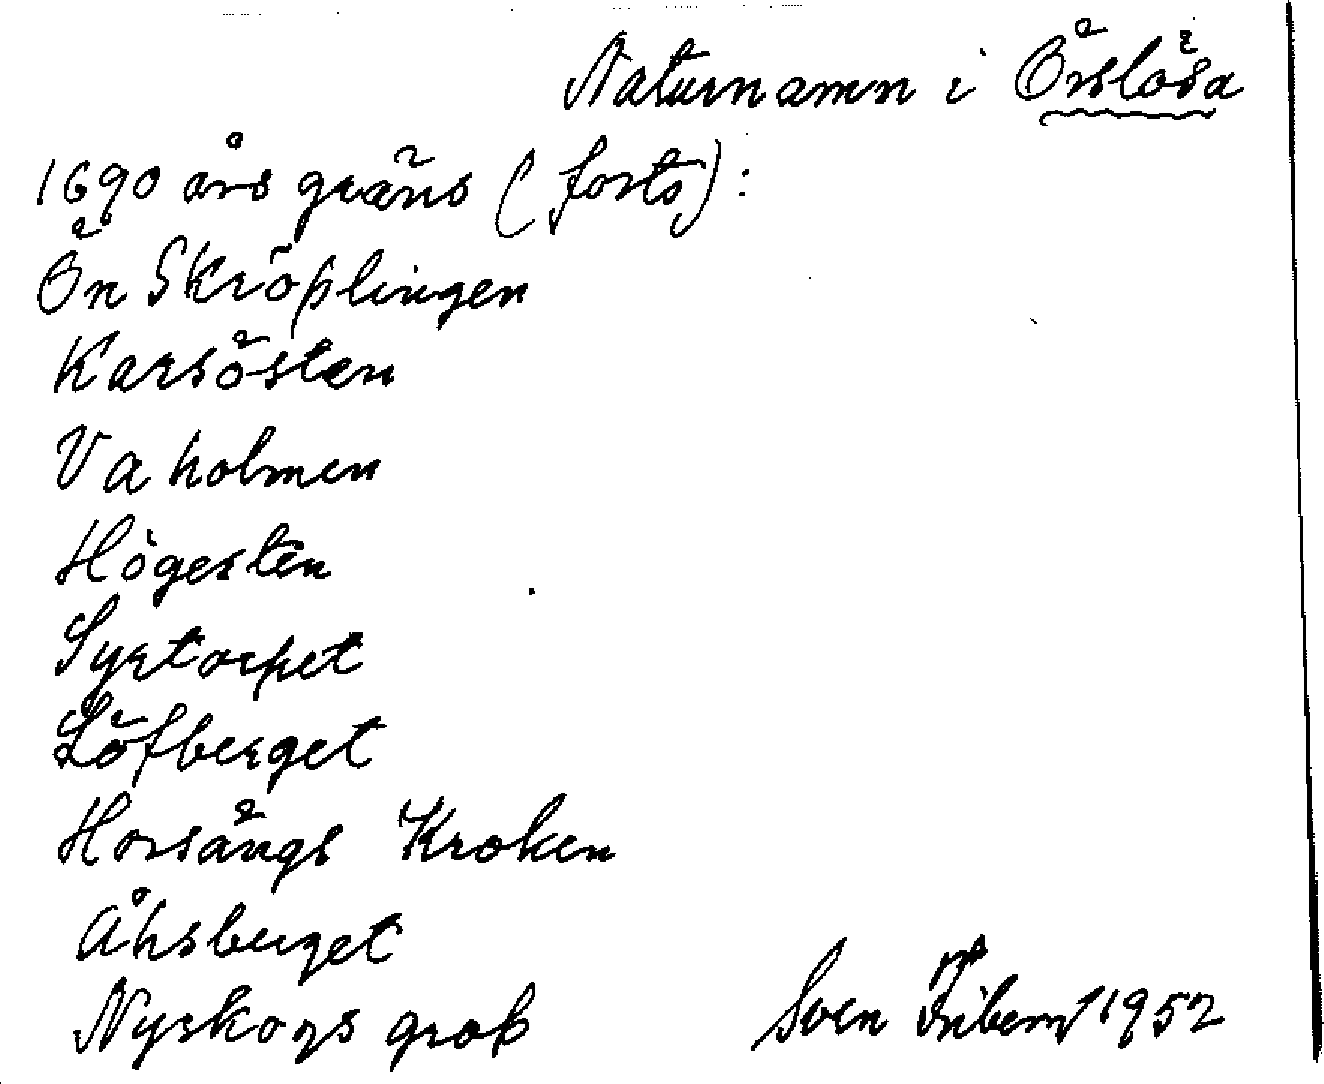 Naturnamn i Örslösa
1690 års gräns (forts):
Ön Skröplingen
Karsösten
Va holmen
Högesten
Syrtorpet
Löfberget
Horsängs Kroken
Åhsberget
Nyskogs grop
Sven Friberg 1952